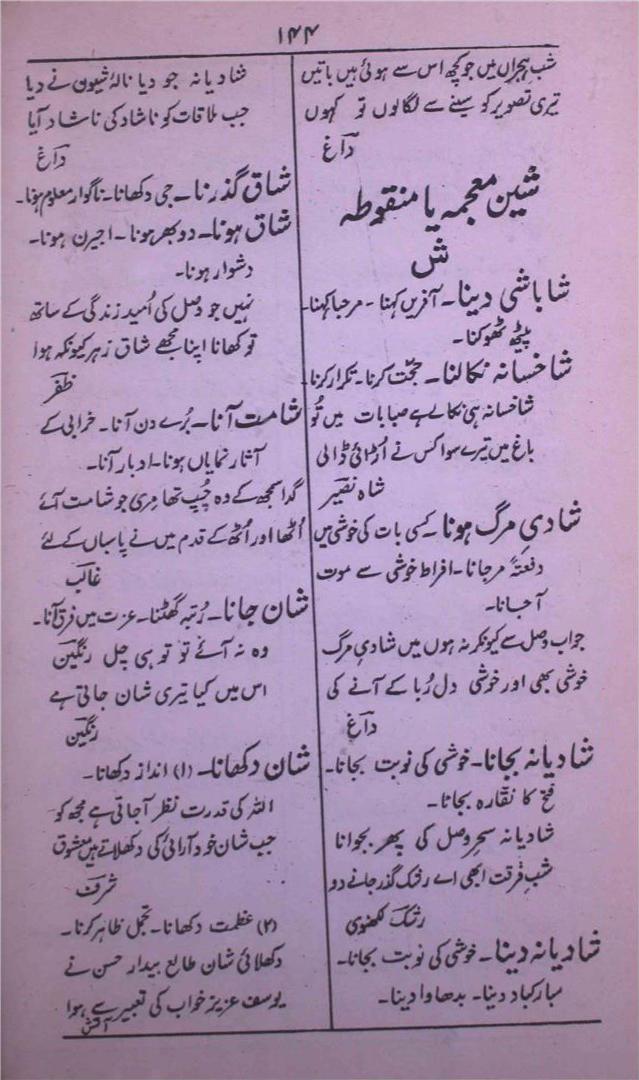 ۱۴۴
شب ہجراں میں جو کچھ اس سے ہوئی ہیں باتیں
تیری تصویر کو سینے سے لگالوں تو کہوں
داغؔ
شین معجمہ یا منقوطہ
ش
شاباشی دینا۔ آفریں کہنا۔ مرحبا کہنا۔
پیٹھ ٹھوکنا۔
شاخسانہ نکالنا۔ حجّت کرنا۔ تکرار کرنا۔
شاخسانہ ہی نکالے ہے صبا بات میں تُو
باغ میں تیرے سوا کس نے اڑائی ڈالی
شاہ نصیرؔ
شادیِ مرگ ہونا۔ کسی بات کی خوشی میں
دفعتہً مرجانا۔ افراط خوشی سے موت
آجانا۔
جواب وصل سے کیونکر نہ ہوں میں شادیِ مرگ
خوشی بھی اور خوشی دل رُبا کے آنے کی
داغؔ
شادیانہ بجانا۔ خوشی کی نوبت بجانا۔
فتح کا نقّارہ بجانا۔
شادیانہ سحرِ وصل کی پھر بجوانا
شبِ فرقت ابھی اے رشک گذر جانے دو
رشکؔ لکھنوی
شادیانہ دینا۔ خوشی کی نوبت بجانا۔
مبارکباد دینا۔ بدھاوا دینا۔
شادیانہ جو دیا نالۂ شیون نے دیا
جب ملاقات کو ناشاد کی ناشاد آیا
داغؔ
شاق گذرنا۔ جی دکھانا۔ ناگوار معلوم ہونا۔
شاق ہونا۔ دوبھر ہونا۔ اجیرن ہونا۔
دشوار ہونا۔
نہیں جو وصل کی اُمید زندگی کے ساتھ
تو کھانا اپنا مجھے شاق زہر کیونکہ ہوا
ظفرؔ
شامت آنا۔ بُرے دن آنا۔ خرابی کے
آثار نمایاں ہونا۔ ادبار آنا۔
گدا سمجھ کے وہ چُپ تھا مری جو شامت آئے
اُٹھا اور اُٹھ کے قدم میں نے پاسباں کے لئے
غالبؔ
شان جانا۔ رُتبہ گھٹنا۔ عزت میں فرق آنا۔
وہ نہ آئے تو تو ہی چل رنگینؔ
اس میں کیا تیری شان جاتی ہے
رنگینؔ
شان دکھانا۔ (۱) انداز دکھانا۔
اللہ کی قدرت نظر آجاتی ہے مجھ کو
جب شان خود آرائی کی دکھلاتے ہیں معشوق
شرفؔ
(۲) عظمت دکھانا۔ تجمل ظاہر کرنا۔
دکھلائی شان طالع بیدار حسن نے
یوسف عزیز خواب کی تعبیر سے ہوا
آتشؔ